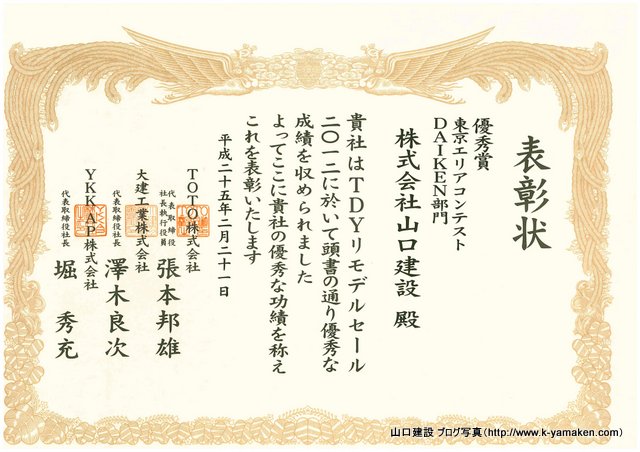 表彰状
優秀賞
東京エリアコンテスト
DAIKEN部門
株式会社山口建設 殿
貴社はTDYリモデルセール
二〇一二に於いて頭書の通り優秀な
成績を収められました
よってここに貴社の優秀な功績を称え
これを表彰いたします
平成二十五年二月二十一日
TOTO株式会社
代表取締役
社長執行役員
張本邦雄
大建工業株式会社
代表取締役社長
澤木良次
YKK AP株式会社
代表取締役社長
堀 秀充
山口建設 ブログ写真(http://www.k-yamaken.com)